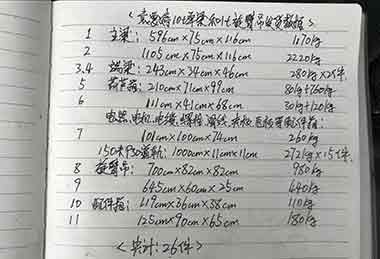 10t
1 主梁: 596cm×75cm×116cm 1170kg
2 1105cm×75cm×116cm 2220kg
3.4 端梁: 243cm×24cm×46cm 280kg×2件
5 210cm×71cm×99cm 80kg+760kg
6 111cm×41cm×68cm 30kg+120kg
电缆
7 101cm×100cm×74cm 260kg
150米P30 1000cm×11cm×11cm 272kg×15件
8 旋臂吊: 700cm×82cm×82cm 980kg
9 645cm×60cm×25cm 640kg
10 配件箱: 119cm×36cm×38cm 110kg
11 125cm×90cm×65cm 180kg
<共计: 26件>